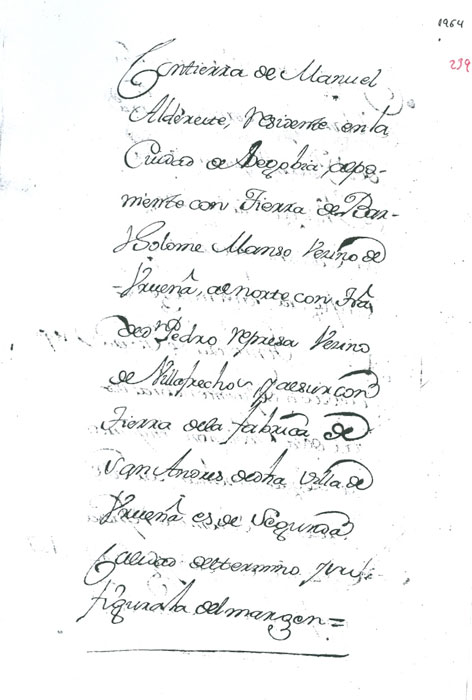 1964
239
Contierra de Manuel
Alderete, residente en la
Ciudad de Segobia, apo-
niente con Tierra de Bar-
tholome Manso Vezino de
Urueña, al norte con Tra
de dn Pedro represa Vezino
de Villafrechos y al sur con
Tierra de la fabrica de
San Andres de dha Villa de
Urueña es de Segunda
Calidad del termino y su
figura la del margen =